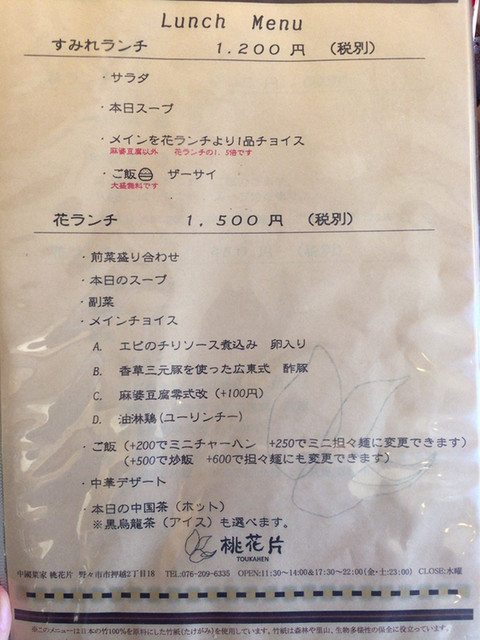 Lunch Menu
すみれランチ 1,200円 (税別)
・サラダ
・本日スープ
・メインを花ランチより1品チョイス
麻婆豆腐以外 花ランチの1.5倍です
・ご飯 ザーサイ
大盛無料です
花ランチ 1,500円 (税別)
・前菜盛り合わせ
・本日のスープ
・副菜
・メインチョイス
A. エビのチリソース煮込み 卵入り
B. 香草三元豚を使った広東式 酢豚
C. 麻婆豆腐零式改(+100円)
D. 油淋鶏(ユーリンチー)
・ご飯(+200でミニチャーハン +250でミニ担々麺に変更できます)
(+500で炒飯 +600で担々麺にも変更できます)
・中華デザート
・本日の中国茶(ホット)
※黒烏龍茶(アイス)も選べます。
桃花片
TOUKAHEN
中國菜家 桃花片 野々市市押越2丁目18 TEL:076-209-6335 OPEN:11:30~14:00&17:30~22:00(金・土:23:00) CLOSE:水曜
※このメニューは日本の竹100%を原料にした竹紙(たけがみ)を使用しています。竹紙は森林や里山、生物多様性の保全に役立っています。